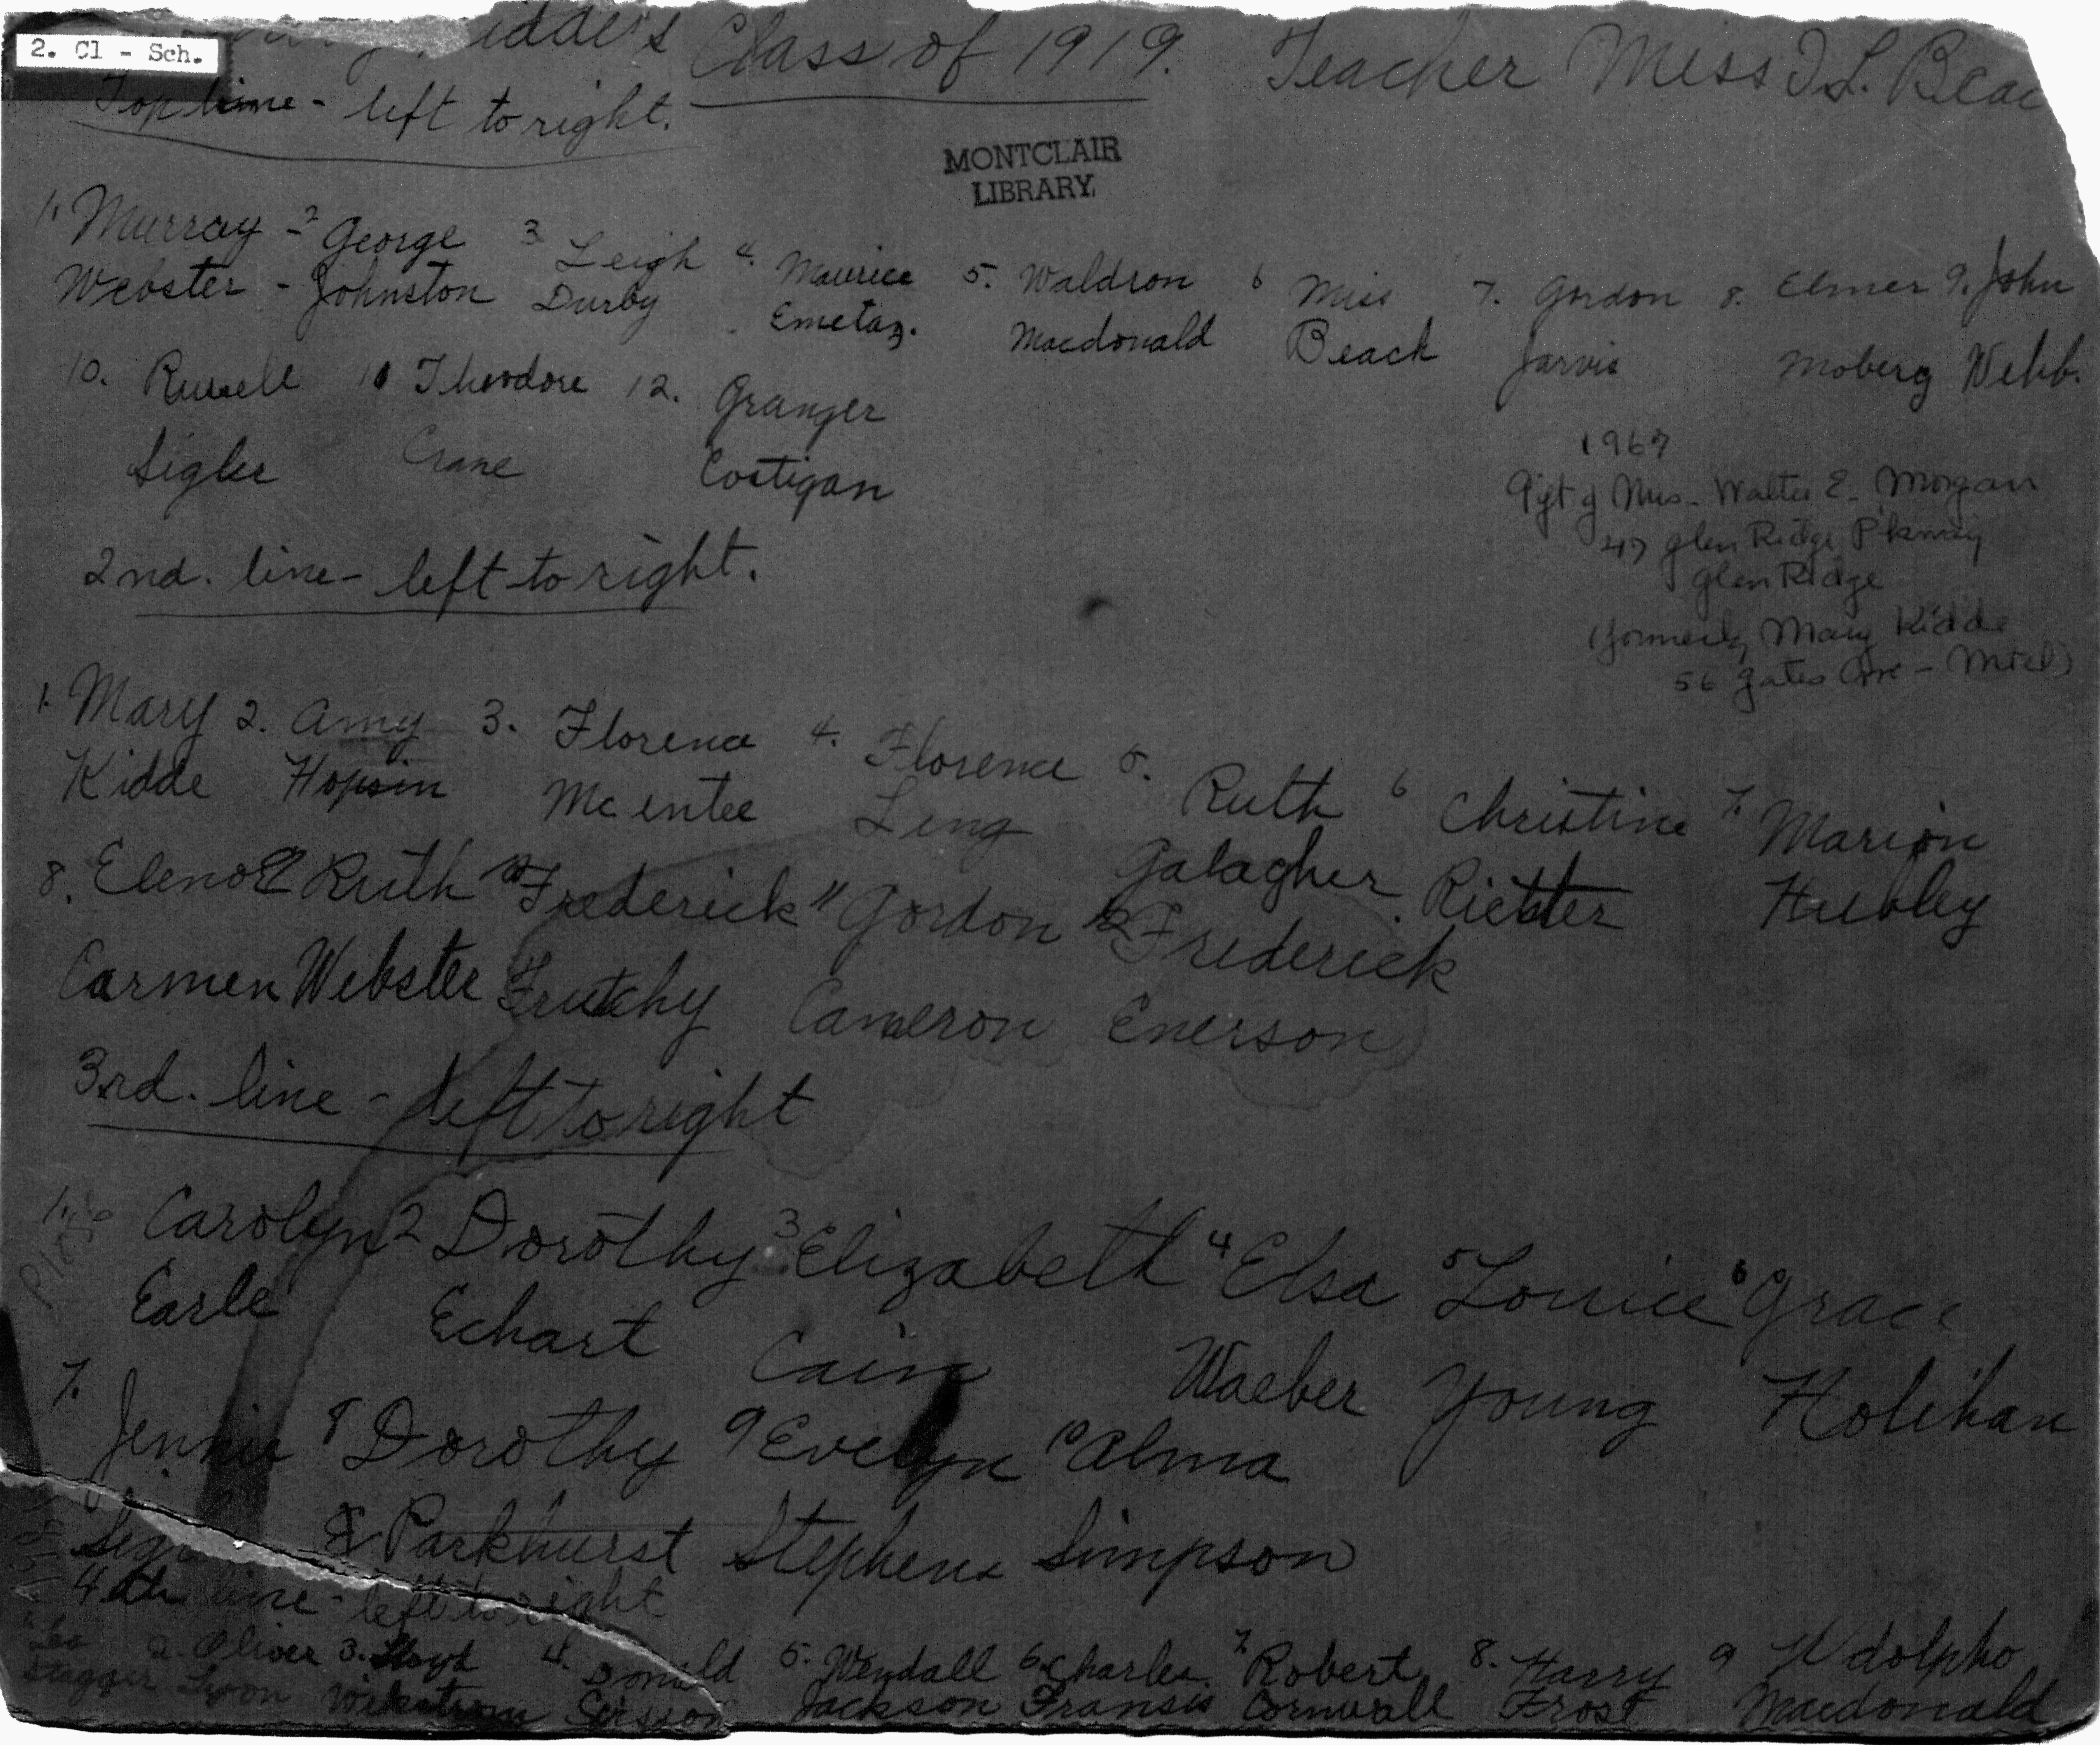 2. Cl - Sch.
Class of 1919. Teacher Miss I L. Beac
Top line - left to right.
MONTCLAIR
LIBRARY.
1. Murray - 2 George 3 Leigh 4. Maurice 5. Waldron 6 Miss 7. Gordon 8. Elmer 9. John
Webster - Johnston Durby Emetaz. Macdonald Beach Jarvis Moberg Webb.
10. Russell 11 Theodore 12. Granger
Sigler Crane Costigan
1967
Gift of Mrs. Walter E. Morgan
47 Glen Ridge Pkway
Glen Ridge
(formerly Mary Kidde
56 Gates Ave - Mtcl)
2nd. line - left to right.
1. Mary 2. Amy 3. Florence 4. Florence 5. Ruth 6 Christine 7. Marion
Kidde Hopsin Mc entee Leng Galagher Richter Hubley
8. Elenor 9 Ruth 10 Frederick 11 Gordon 12 Frederick
Carmen Webster Frutchy Cameron Enerson
3rd. line - left to right
1. Carolyn 2 Dorothy 3 Elizabeth 4 Elsa 5 Louise 6 Grace
Earle Echart Cain Waeber Young Holihan
7. Jennie 8 Dorothy 9 Evelyn 10 Alma
Parkhurst Stephens Simpson
4th line - left to right
2. Oliver 3. Lloyd 4. Donald 5. Wendall 6. Charles 7 Robert 8. Harry 9
Lyon Wikstrom Sisson Jackson Fransis Cornwall Frost Macdonald